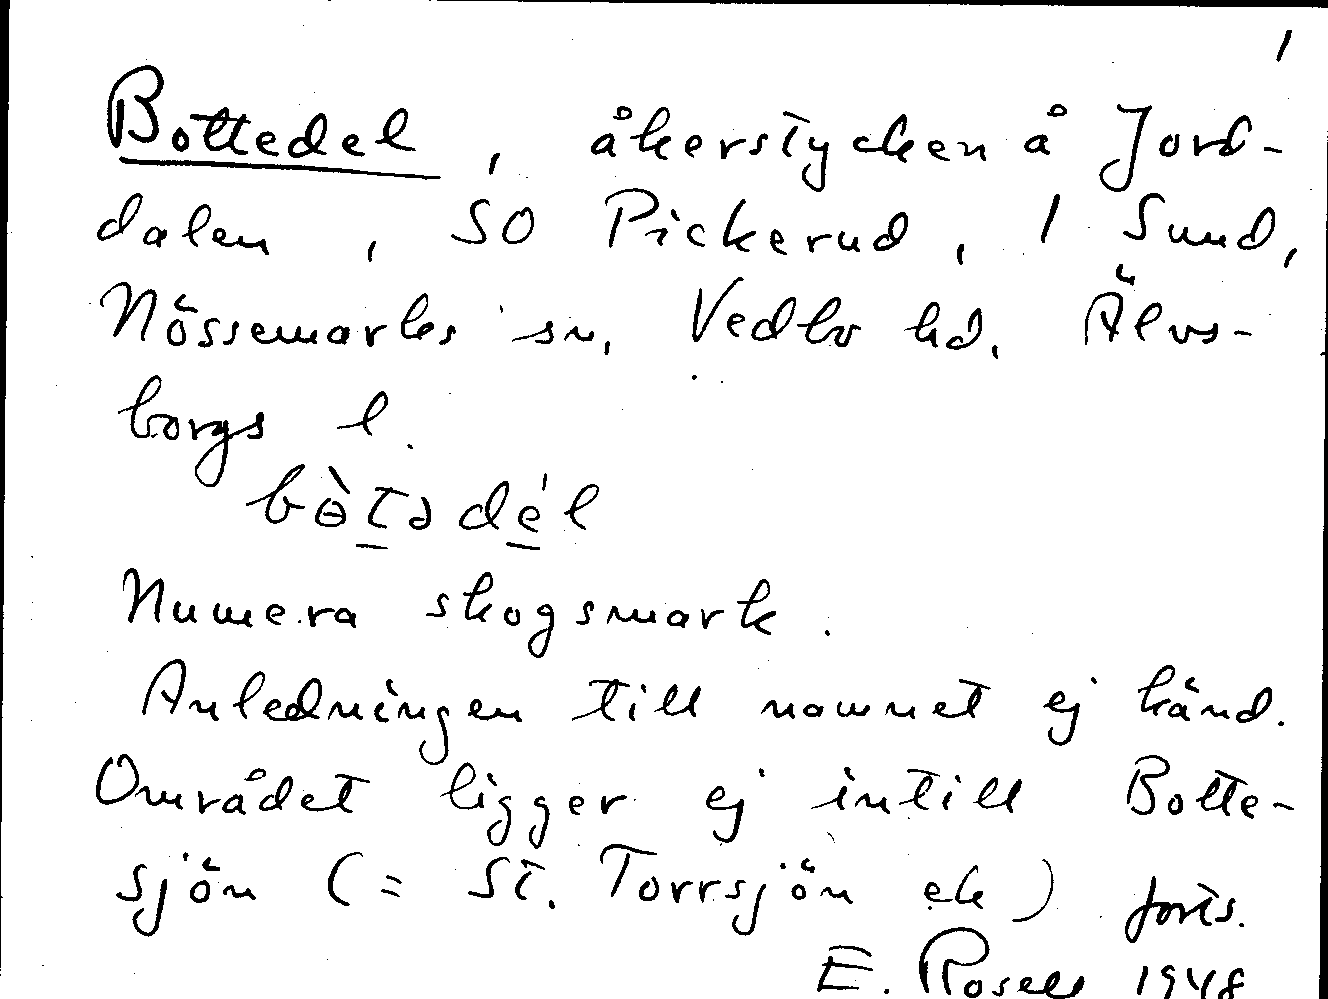 1
Bottedel, åkerstycken å Jord-
dalen, SO Pickerud, 1 Sund,
Nössemarks sn, Vedbo hd. Älvs-
borgs l.
bòtədél
Numera skogsmark.
Anledningen till namnet ej känd.
Området ligger ej intill Botte-
sjön (= St. Torrsjön ek) forts.
E. Rosell 1948